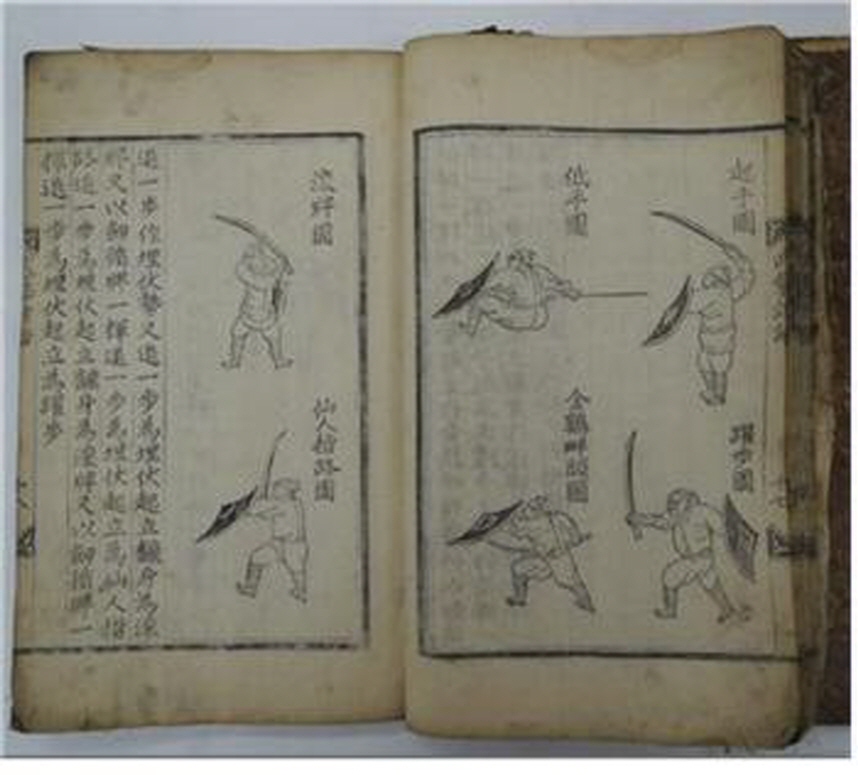 起手圖
躍步圖
低平圖
金鷄畔頭圖
滾牌圖
仙人指路圖
進一步作埋伏勢又進一步為埋伏起立身為滾
牌又以劒牌一揮進一步為埋伏起立為仙人指
路進一步為埋伏起立身為滾牌又以劒牌一
揮進一步為埋伏起立為躍步